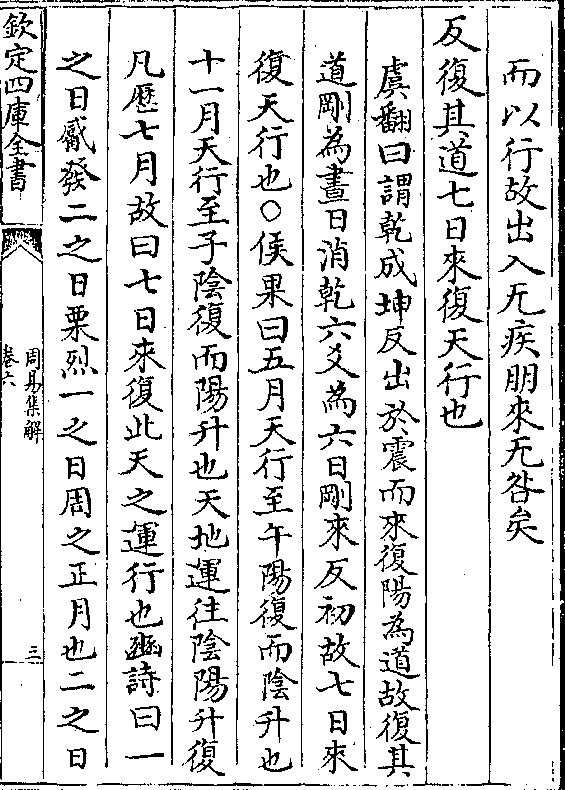 而以行故出入无疾朋來无咎矣
反復其道七日來復天行也
虞翻曰謂乾成坤反出於震而來復陽為道故復其
道剛為晝日消乾六爻為六日剛來反初故七日來
復天行也○侯果曰五月天行至午陽復而陰升也
十一月天行至子陰復而陽升也天地運往陰陽升復
凡歷七月故曰七日來復此天之運行也豳詩曰一
之日觱發二之日栗烈一之日周之正月也二之日
欽定四庫全書
周易集解
卷六
三